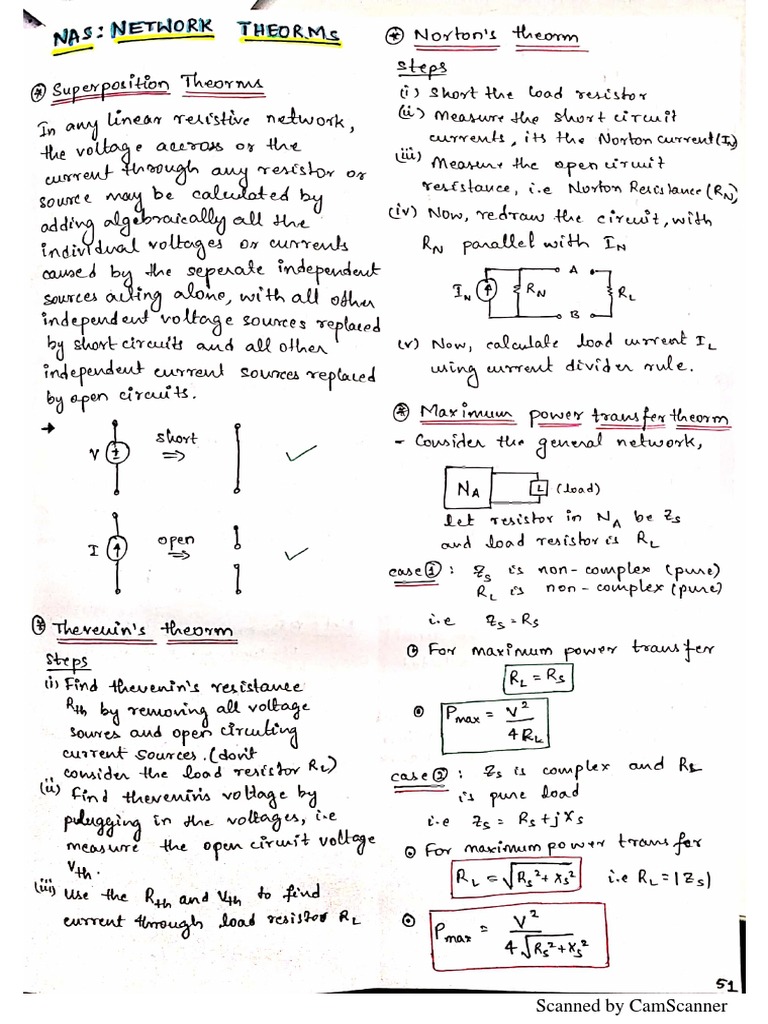 NAS: NETWORK THEORMs
* Superposition Theorms
In any linear resistive network,
the voltage accross or the
current through any resistor or
source may be calculated by
adding algebraically all the
individual voltages or currents
caused by the seperate independent
sources acting alone, with all other
independent voltage sources replaced
by short circuits and all other
independent current sources replaced
by open circuits.
→
V ± short ⇒ ✓
I ↑ open ⇒ ✓
* Thevenin's theorm
Steps
(i) Find thevenin's resistance
Rth by removing all voltage
soures and open circuting
current sources. (don't
consider the load resistor RL)
(ii) Find thevenin's voltage by
plugging in the voltages, i.e
measure the open circuit voltage
Vth.
(iii) Use the Rth and Vth to find
current through load resistor RL
* Norton's theorm
Steps
(i) Short the load resistor
(ii) Measure the short circuit
currents, its the Norton current (IN)
(iii) Measure the open circuit
resistance, i.e Norton Resistance (RN)
(iv) Now, redraw the circuit, with
RN parallel with IN
IN RN A B RL
(v) Now, calculate load current IL
using current divider rule.
* Maximum power transfer theorm
- Consider the general network,
NA L (load)
let resistor in NA be Zs
and load resistor is RL
case ① : Zs is non-complex (pure)
RL is non-complex (pure)
i.e Zs = Rs
⊙ For maximum power transfer
RL = Rs
⊙ Pmax = V²/4RL
case ② : Zs is complex and RL
is pure load
i.e Zs = Rs + jXs
⊙ For maximum power transfer
RL = √(Rs² + Xs²) i.e RL = |Zs|
⊙ Pmax = V²/4√(Rs² + Xs²)
51
Scanned by CamScanner